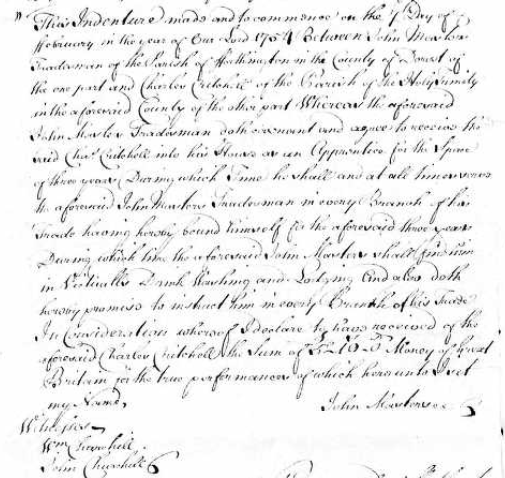 This Indenture made and to commence on the 7th Day of
February in the year of Our Lord 1754 Between John Masters
Tradesman of the Parish of in the County of Dorset of
the one part and Charles Critchell of the Parish of the Holy Family
in the aforesaid County of the other part Whereas the aforesaid
John Masters Tradesman doth covenant and agree to receive the
said Chas. Critchell into his House as an Apprentice for the Space
of three years During which Time he shall and at all times serve
the aforesaid John Masters Tradesman in every Branch of his
Trade having hereby bound himself for the aforesaid three years
During which time the aforesaid John Masters shall find him
in Victualls Drink Washing and Lodging And also doth
hereby promise to instruct him in every Branch of his Trade
In Consideration whereof I declare to have received of the
aforesaid Charles Critchell the Sum of Money of Great
Britain for the true performance of which hereunto I set
my Name,
John Masters
Witnesses
Wm. Churchill
John Churchill